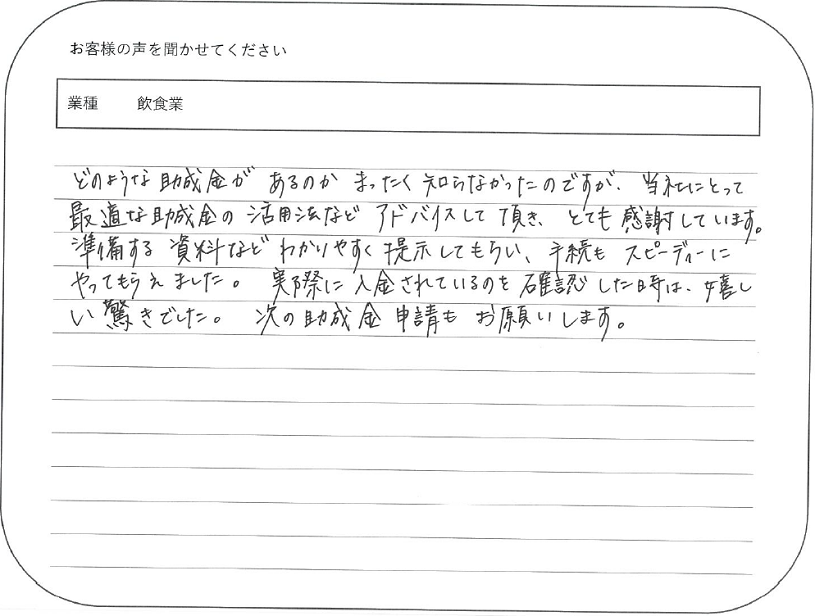 お客様の声を聞かせてください
業種 飲食業
どのような助成金が あるのか まったく知らなかったのですが、当社にとって
最適な助成金の 活用法など アドバイスして 頂き、とても 感謝しています。
準備する 資料など わかりやすく 提示してもらい、手続も スピーディーに
やってもらえました。 実際に 入金されているのを 確認した時は、嬉し
い驚きでした。 次の助成金 申請も お願いします。